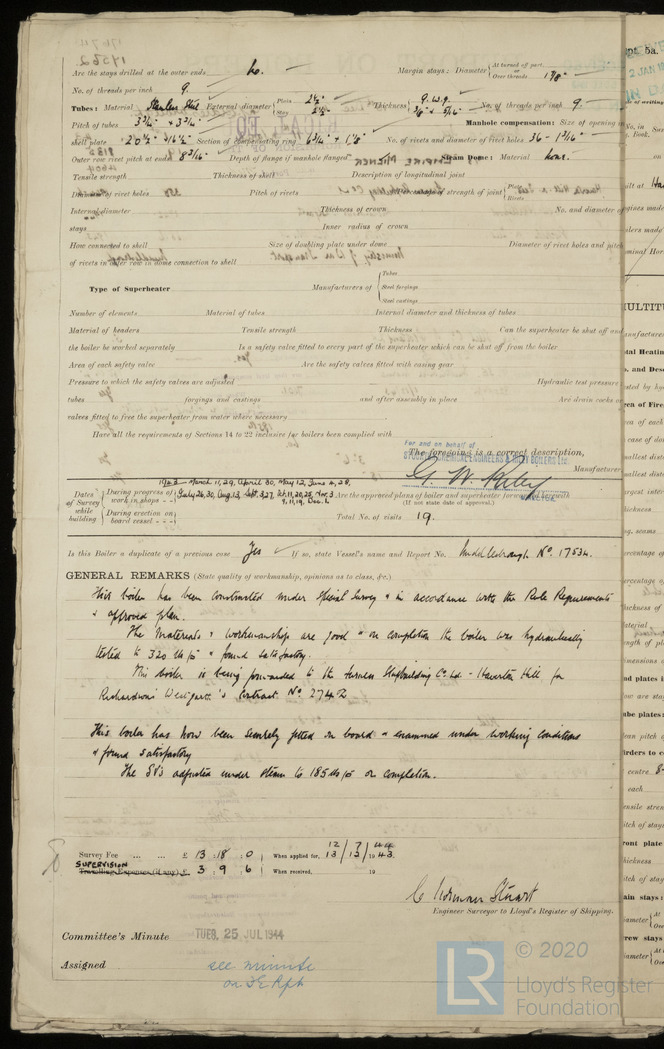 17562
Are the stays drilled at the outer ends No. Margin stays: Diameter { At turned off part, or Over threads 1 7/8"
No. of threads per inch 9.
Tubes: Material Stainless Steel External diameter { Plain 2½" Stay 2½" Thickness { 9 W.G. 3/8" & 5/16" No. of threads per inch 9
Pitch of tubes 3 3/4" + 3 3/4" Manhole compensation: Size of opening in
shell plate 20½" 16½" Section of compensating ring 6¼" + 1 1/8" No. of rivets and diameter of rivet holes 36 - 1 3/16"
Outer row rivet pitch at ends 8 3/16" Depth of flange if manhole flanged Steam Dome: Material none.
Tensile strength Thickness of shell Description of longitudinal joint
Diameter of rivet holes Pitch of rivets Percentage of strength of joint { Plate Rivets
Internal diameter Thickness of crown No. and diameter of
stays Inner radius of crown
How connected to shell Size of doubling plate under dome Diameter of rivet holes and pitch
of rivets in outer row in dome connection to shell
Type of Superheater Manufacturers of { Tubes Steel forgings Steel castings
Number of elements Material of tubes Internal diameter and thickness of tubes
Material of headers Tensile strength Thickness Can the superheater be shut off and
the boiler be worked separately Is a safety valve fitted to every part of the superheater which can be shut off from the boiler
Area of each safety valve Are the safety valves fitted with easing gear
Pressure to which the safety valves are adjusted Hydraulic test pressure
tubes forgings and castings and after assembly in place Are drain cocks or
valves fitted to free the superheater from water where necessary
Have all the requirements of Sections 14 to 22 inclusive for boilers been complied with
For and on behalf of
The foregoing is a correct description,
STOCKTON CHEMICAL ENGINEERS & RILEY BOILERS Ltd.
G. W. Riley Manufacturer
DIRECTOR
Dates of Survey while building { During progress of work in shops - - { 1943 - March 11, 29, April 30, May 12, June 4, 28,
July 26, 30, Aug. 13, Sept. 3, 27, Oct. 11, 20, 25, Nov. 3 Are the approved plans of boiler and superheater forwarded herewith
9, 11, 19, Dec. 2 (If not state date of approval.)
During erection on board vessel - - - Total No. of visits 19.
Is this Boiler a duplicate of a previous case Yes If so, state Vessel's name and Report No. Middlesbrough No. 17534.
GENERAL REMARKS (State quality of workmanship, opinions as to class, &c.)
This boiler has been constructed under Special Survey & in accordance with the Rule Requirements
& approved plan.
The Materials & workmanship are good & on completion the boiler was hydraulically
tested to 320 lb/□" & found satisfactory.
This boiler is being forwarded to the Furness Shipbuilding Co. Ltd - Haverton Hill for
Richardsons Westgarth's Contract No. 2742
This boiler has now been securely fitted on board & examined under working conditions
& found satisfactory
The SVs adjusted under steam to 185 lb/□" on completion.
Survey Fee ... ... £ 13 : 18 : 0 When applied for, 12/7/44 13/12/1943.
SUPERVISION
Travelling Expenses (if any) £ 3 : 9 : 6 When received, 19
C Norman Stuart
Engineer Surveyor to Lloyd's Register of Shipping.
Committee's Minute TUES. 25 JUL 1944
Assigned see minute
on F.E. Rpt
© 2020
Lloyd's Register
Foundation
LR